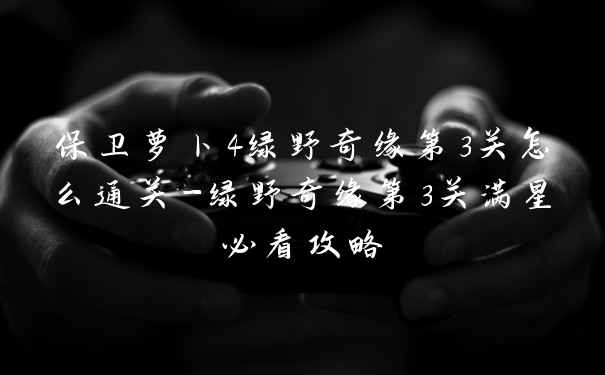 保卫萝卜4绿野奇缘第3关怎
么通关-绿野奇缘第3关满星
必看攻略